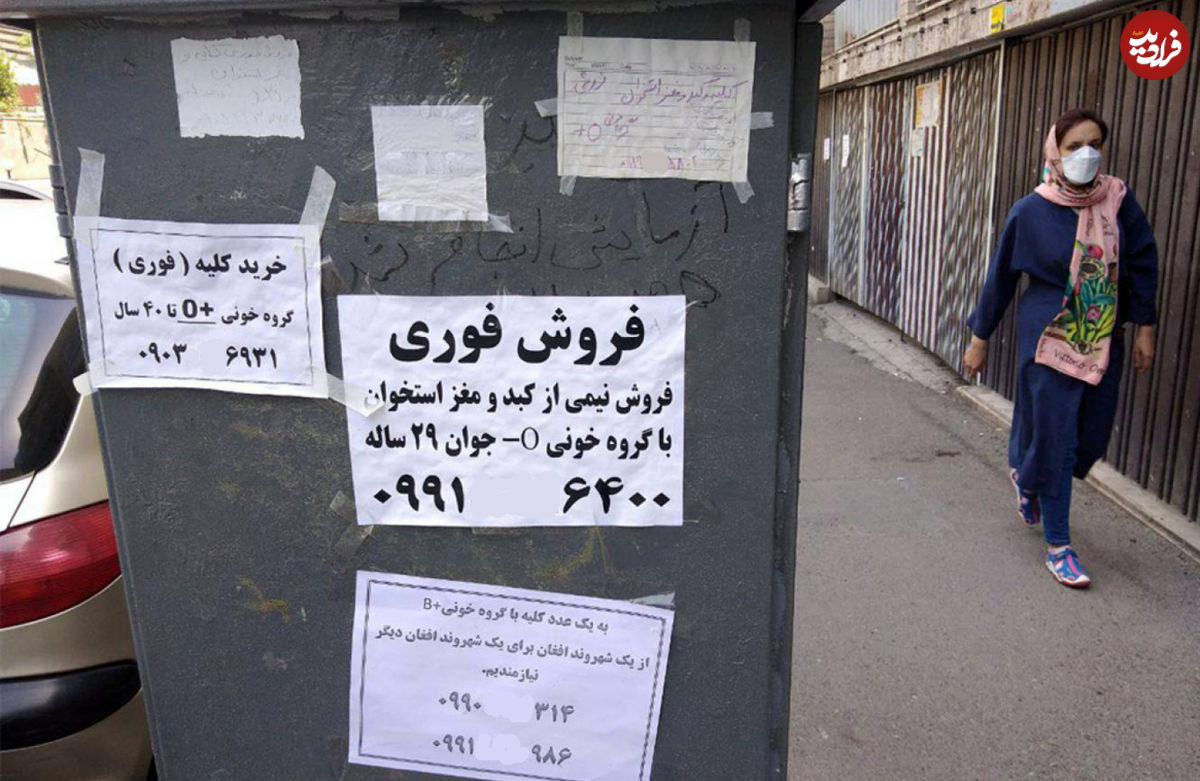 فرارید
فروش کلیه و
کلیه و کبد و مغز استخوان فروش
O+
آزمایش انجام
خرید کلیه ( فوری )
گروه خونی O+ تا ۴۰ سال
۰۹۰۳ ۶۹۳۱
فروش فوری
فروش نیمی از کبد و مغز استخوان
با گروه خونی O- جوان ۲۹ ساله
۰۹۹۱ ۶۴۰۰
به یک عدد کلیه با گروه خونی B+
از یک شهروند افغان برای یک شهروند افغان دیگر
نیازمندیم.
۰۹۹۰ ۳۱۴
۰۹۹۱ ۹۸۶
Vittorio